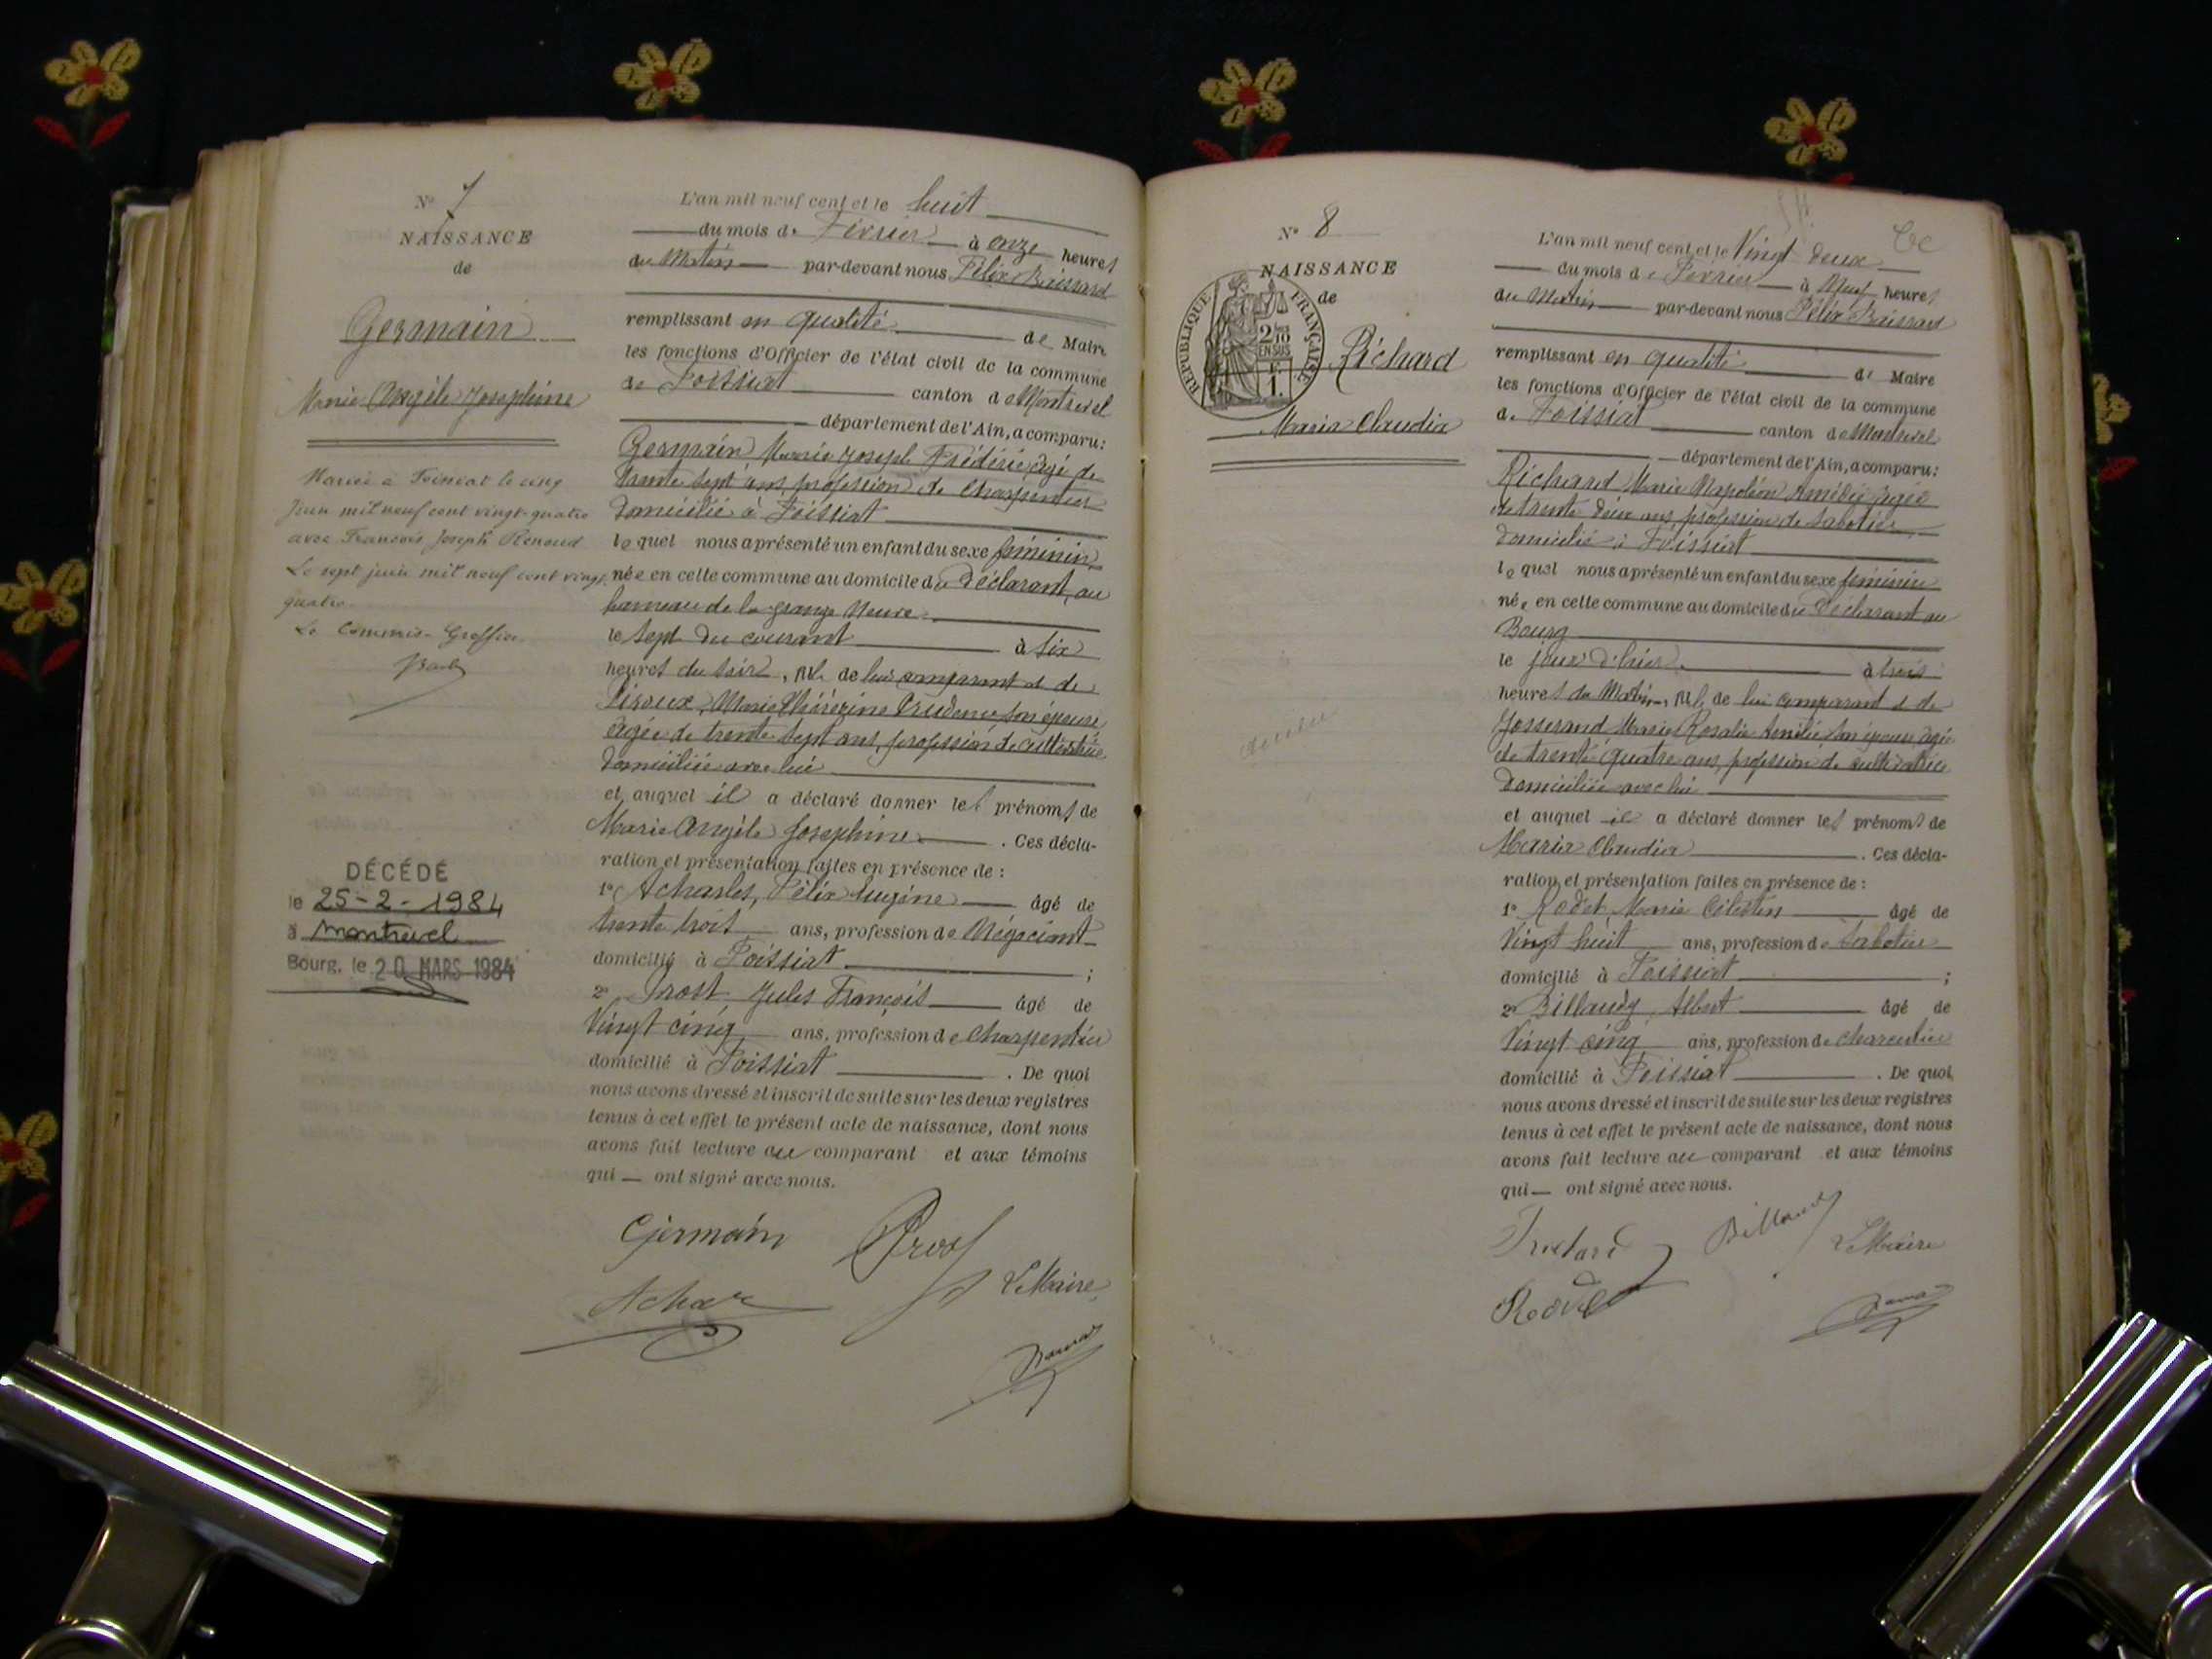 N° 7
NAISSANCE
de
Germain
Marie Angèle Joséphine
Mariée à Foissiat le cinq
Juin mil neuf cent vingt-quatre
avec François Joseph Renoud
Le sept juin mil neuf cent vingt
quatre
Le Commis-Greffier
DÉCÉDÉ
le 25-2-1984
à Montrevel
Bourg, le 20 MARS 1984
L'an mil neuf cent et le huit
du mois de Février à onze heures
du Matin par-devant nous Félix
remplissant en qualité de Maire
les fonctions d'Officier de l'état civil de la commune
de Foissiat canton de Montrevel
département de l'Ain, a comparu:
Germain Marie Joseph Frédéric, âgé de
trente sept ans, profession de charpentier
domicilié à Foissiat
lequel nous a présenté un enfant du sexe féminin
née en cette commune au domicile du déclarant, au
hameau de la grange Neuve
le sept du courant à six
heures du soir, fille de lui comparant et de
Piroux, Marie Prudence son épouse
âgée de trente sept ans, profession de cultivatrice
domiciliée avec lui
et auquel il a déclaré donner les prénoms de
Marie Angèle Joséphine. Ces décla-
ration et présentation faites en présence de :
1° Acharles, Félix Eugène âgé de
trente trois ans, profession de Négociant
domicilié à Foissiat ;
2° Prost Jules François âgé de
Vingt cinq ans, profession de Charpentier
domicilié à Foissiat. De quoi
nous avons dressé et inscrit de suite sur les deux registres
tenus à cet effet le présent acte de naissance, dont nous
avons fait lecture au comparant et aux témoins
qui ont signé avec nous.
Germain Prost
Le Maire
N° 8
NAISSANCE
de
RÉPUBLIQUE FRANÇAISE
2/10
EN SUS
F.
1.
Richard
Maria Claudia
L'an mil neuf cent et le Vingt deux
du mois de Février à Neuf heures
du Matin par-devant nous Félix
remplissant en qualité de Maire
les fonctions d'Officier de l'état civil de la commune
de Foissiat canton de Montrevel
département de l'Ain, a comparu:
Richard Marie Napoléon Amédée âgé
de trente deux ans, profession de sabotier
domicilié à Foissiat
lequel nous a présenté un enfant du sexe féminin
née en cette commune au domicile du Déclarant au
Bourg
le jour d'hier à trois
heures du Matin, fille de lui comparant et de
Josserand Marie Rosalie Amélie son épouse âgée
de trente quatre ans, profession de cultivatrice
domiciliée avec lui
et auquel il a déclaré donner les prénoms de
Maria Claudia. Ces décla-
ration et présentation faites en présence de :
1° Rodet Marie Célestin âgé de
Vingt huit ans, profession de Sabotier
domicilié à Foissiat ;
2° Billaudy Albert âgé de
Vingt cinq ans, profession de charcutier
domicilié à Foissiat. De quoi
nous avons dressé et inscrit de suite sur les deux registres
tenus à cet effet le présent acte de naissance, dont nous
avons fait lecture au comparant et aux témoins
qui ont signé avec nous.
Richard Le Maire
Rodet